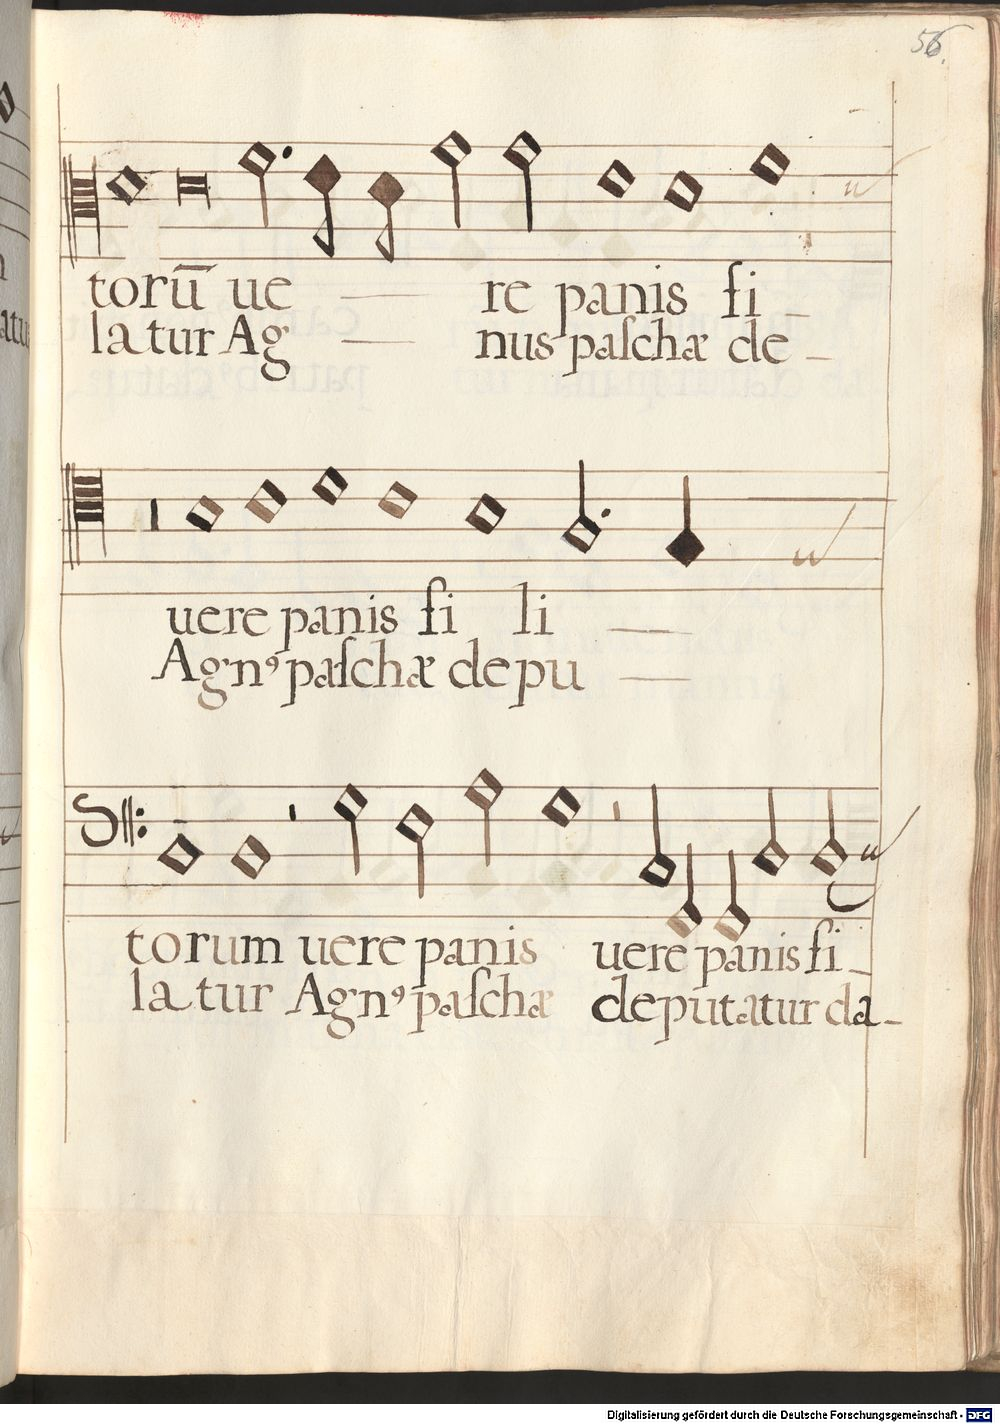 56.
torū ue re panis fi
latur Ag nus paſchæ de
uere panis fi li
Agn⁹ paſchæ depu
torum uere panis uere panis fi
latur Agn⁹ paſchæ deputatur da
Digitalisierung gefördert durch die Deutsche Forschungsgemeinschaft - DFG